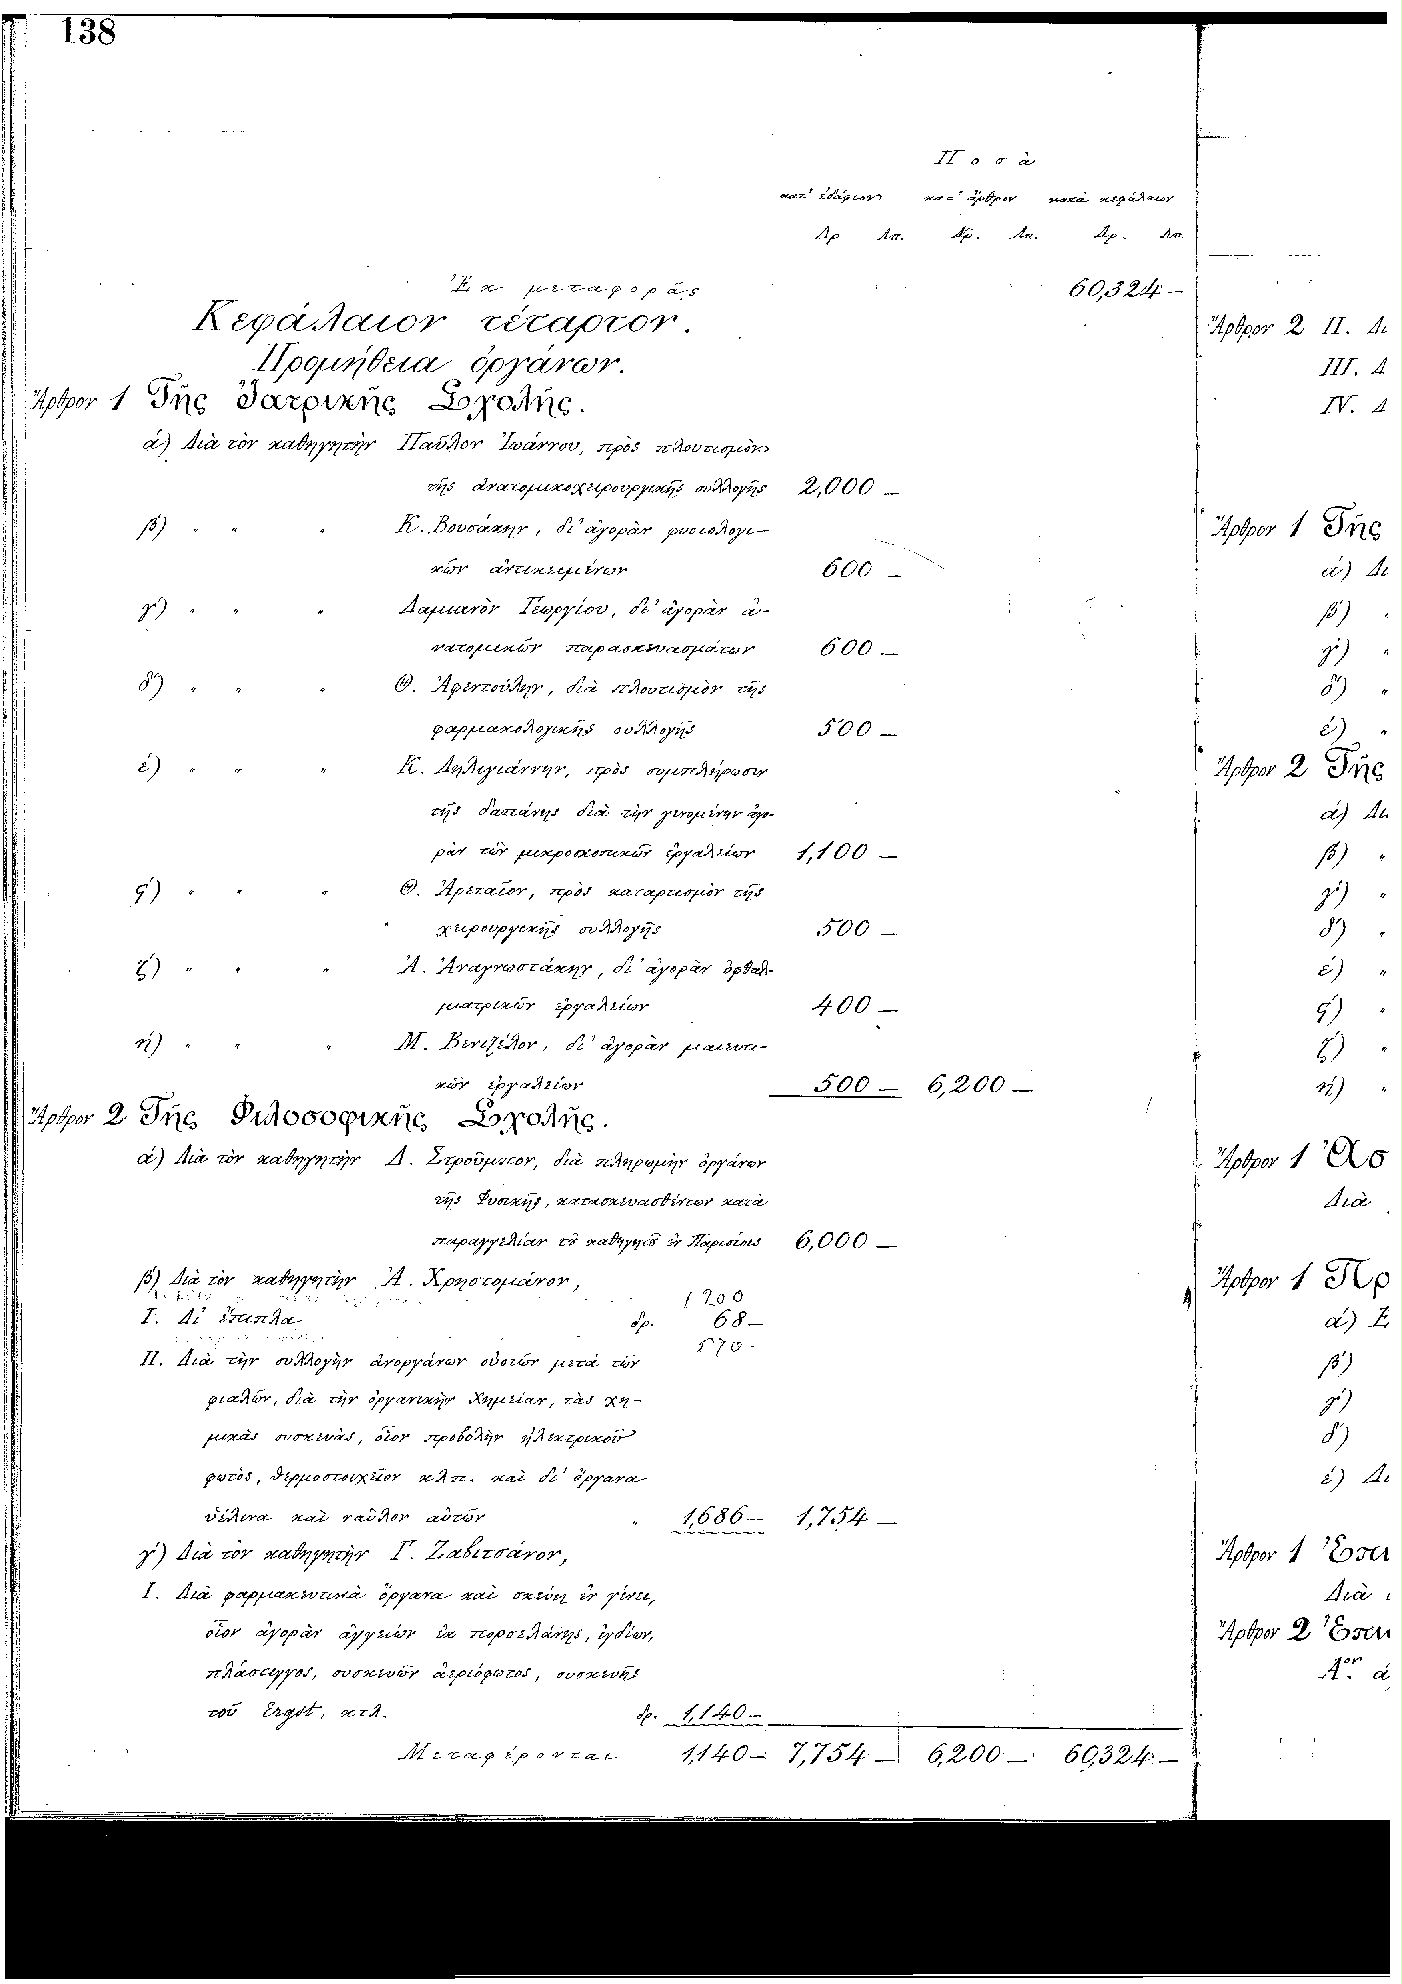 138
Ποσὰ
κατ' ἐδάφιον κατ' ἄρθρον κατὰ κεφάλαιον
Δρ Λπ. Δρ. Λπ. Δρ. Λπ.
Ἐκ μεταφορᾶς 60,324 —
Κεφάλαιον τέταρτον.
Προμήθεια ὀργάνων.
Ἄρθρον 1 Τῆς Ἰατρικῆς Σχολῆς.
ά) Διὰ τὸν καθηγητὴν Παῦλον Ἰωάννου, πρὸς πλουτισμὸν
τῆς ἀνατομικοχειρουργικῆς συλλογῆς 2,000 —
β́) " " " Κ. Βουσάκην, δι' ἀγορὰν φυσιολογι-
κῶν ἀντικειμένων 600 —
γ́) " " " Δαμιανὸν Γεωργίου, δι' ἀγορὰν ἀ-
νατομικῶν παρασκευασμάτων 600 —
δ́) " " " Θ. Ἀφεντούλην, διὰ πλουτισμὸν τῆς
φαρμακολογικῆς συλλογῆς 500 —
έ) " " " Κ. Δηλιγιάννην, πρὸς συμπλήρωσιν
τῆς δαπάνης διὰ τὴν γενομένην ἀγο-
ρὰν τῶν μικροσκοπικῶν ἐργαλείων 1,100 —
ϛ́) " " " Θ. Ἀρεταῖον, πρὸς καταρτισμὸν τῆς
χειρουργικῆς συλλογῆς 500 —
ζ́) " " " Ἀ. Ἀναγνωστάκην, δι' ἀγορὰν ὀφθαλ-
μιατρικῶν ἐργαλείων 400 —
ή) " " " Μ. Βενιζέλον, δι' ἀγορὰν μαιευτι-
κῶν ἐργαλείων 500 — 6,200 —
Ἄρθρον 2 Τῆς Φιλοσοφικῆς Σχολῆς.
ά) Διὰ τὸν καθηγητὴν Δ. Στροῦμπον, διὰ πληρωμὴν ὀργάνων
τῆς Φυσικῆς, κατασκευασθέντων κατὰ
παραγγελίαν τοῦ καθηγητοῦ ἐν Παρισίοις 6,000 —
β́) Διὰ τὸν καθηγητὴν Ἀ. Χρηστομάνον,
1200
I. Δι' ἔπιπλα δρ. 68 —
570 -
II. Διὰ τὴν συλλογὴν ἀνοργάνων οὐσιῶν μετὰ τῶν
φιαλῶν, διὰ τὴν ὀργανικὴν Χημείαν, τὰς χη-
μικὰς συσκευὰς, οἷον προβολὴν ἠλεκτρικοῦ
φωτὸς, θερμοστοιχεῖον κλπ. καὶ δι' ὄργανα
ὑέλινα καὶ ναῦλον αὐτῶν " 1,686 — 1,754 —
γ́) Διὰ τὸν καθηγητὴν Γ. Ζαβιτσάνον,
I. Διὰ φαρμακευτικὰ ὄργανα καὶ σκεύη ἐν γένει,
οἷον ἀγορὰν ἀγγείων ἐκ πορσελάνης, ἰγδίων,
πλάστιγγος, συσκευῶν ἀεριόφωτος, συσκευῆς
τοῦ κτλ. δρ. 1,140 —
Μεταφέρονται 1,140 — 7,754 — 6,200 — 60,324 —
Ἄρθρον 2 II. Δι
III. Δ
IV. Δ
Ἄρθρον 1 Τῆς
ά) Δι
β́) "
γ́) "
δ́) "
έ) "
Ἄρθρον 2 Τῆς
ά) Δι
β́) "
γ́) "
δ́) "
έ) "
ϛ́) "
ζ́) "
ή) "
Ἄρθρον 1 Ἀσ
Διὰ
Ἄρθρον 1 Πρ
ά) Ε
β́)
γ́)
δ́)
έ) Δι
Ἄρθρον 1 Ἐπι
Διὰ
Ἄρθρον 2 Ἐπι